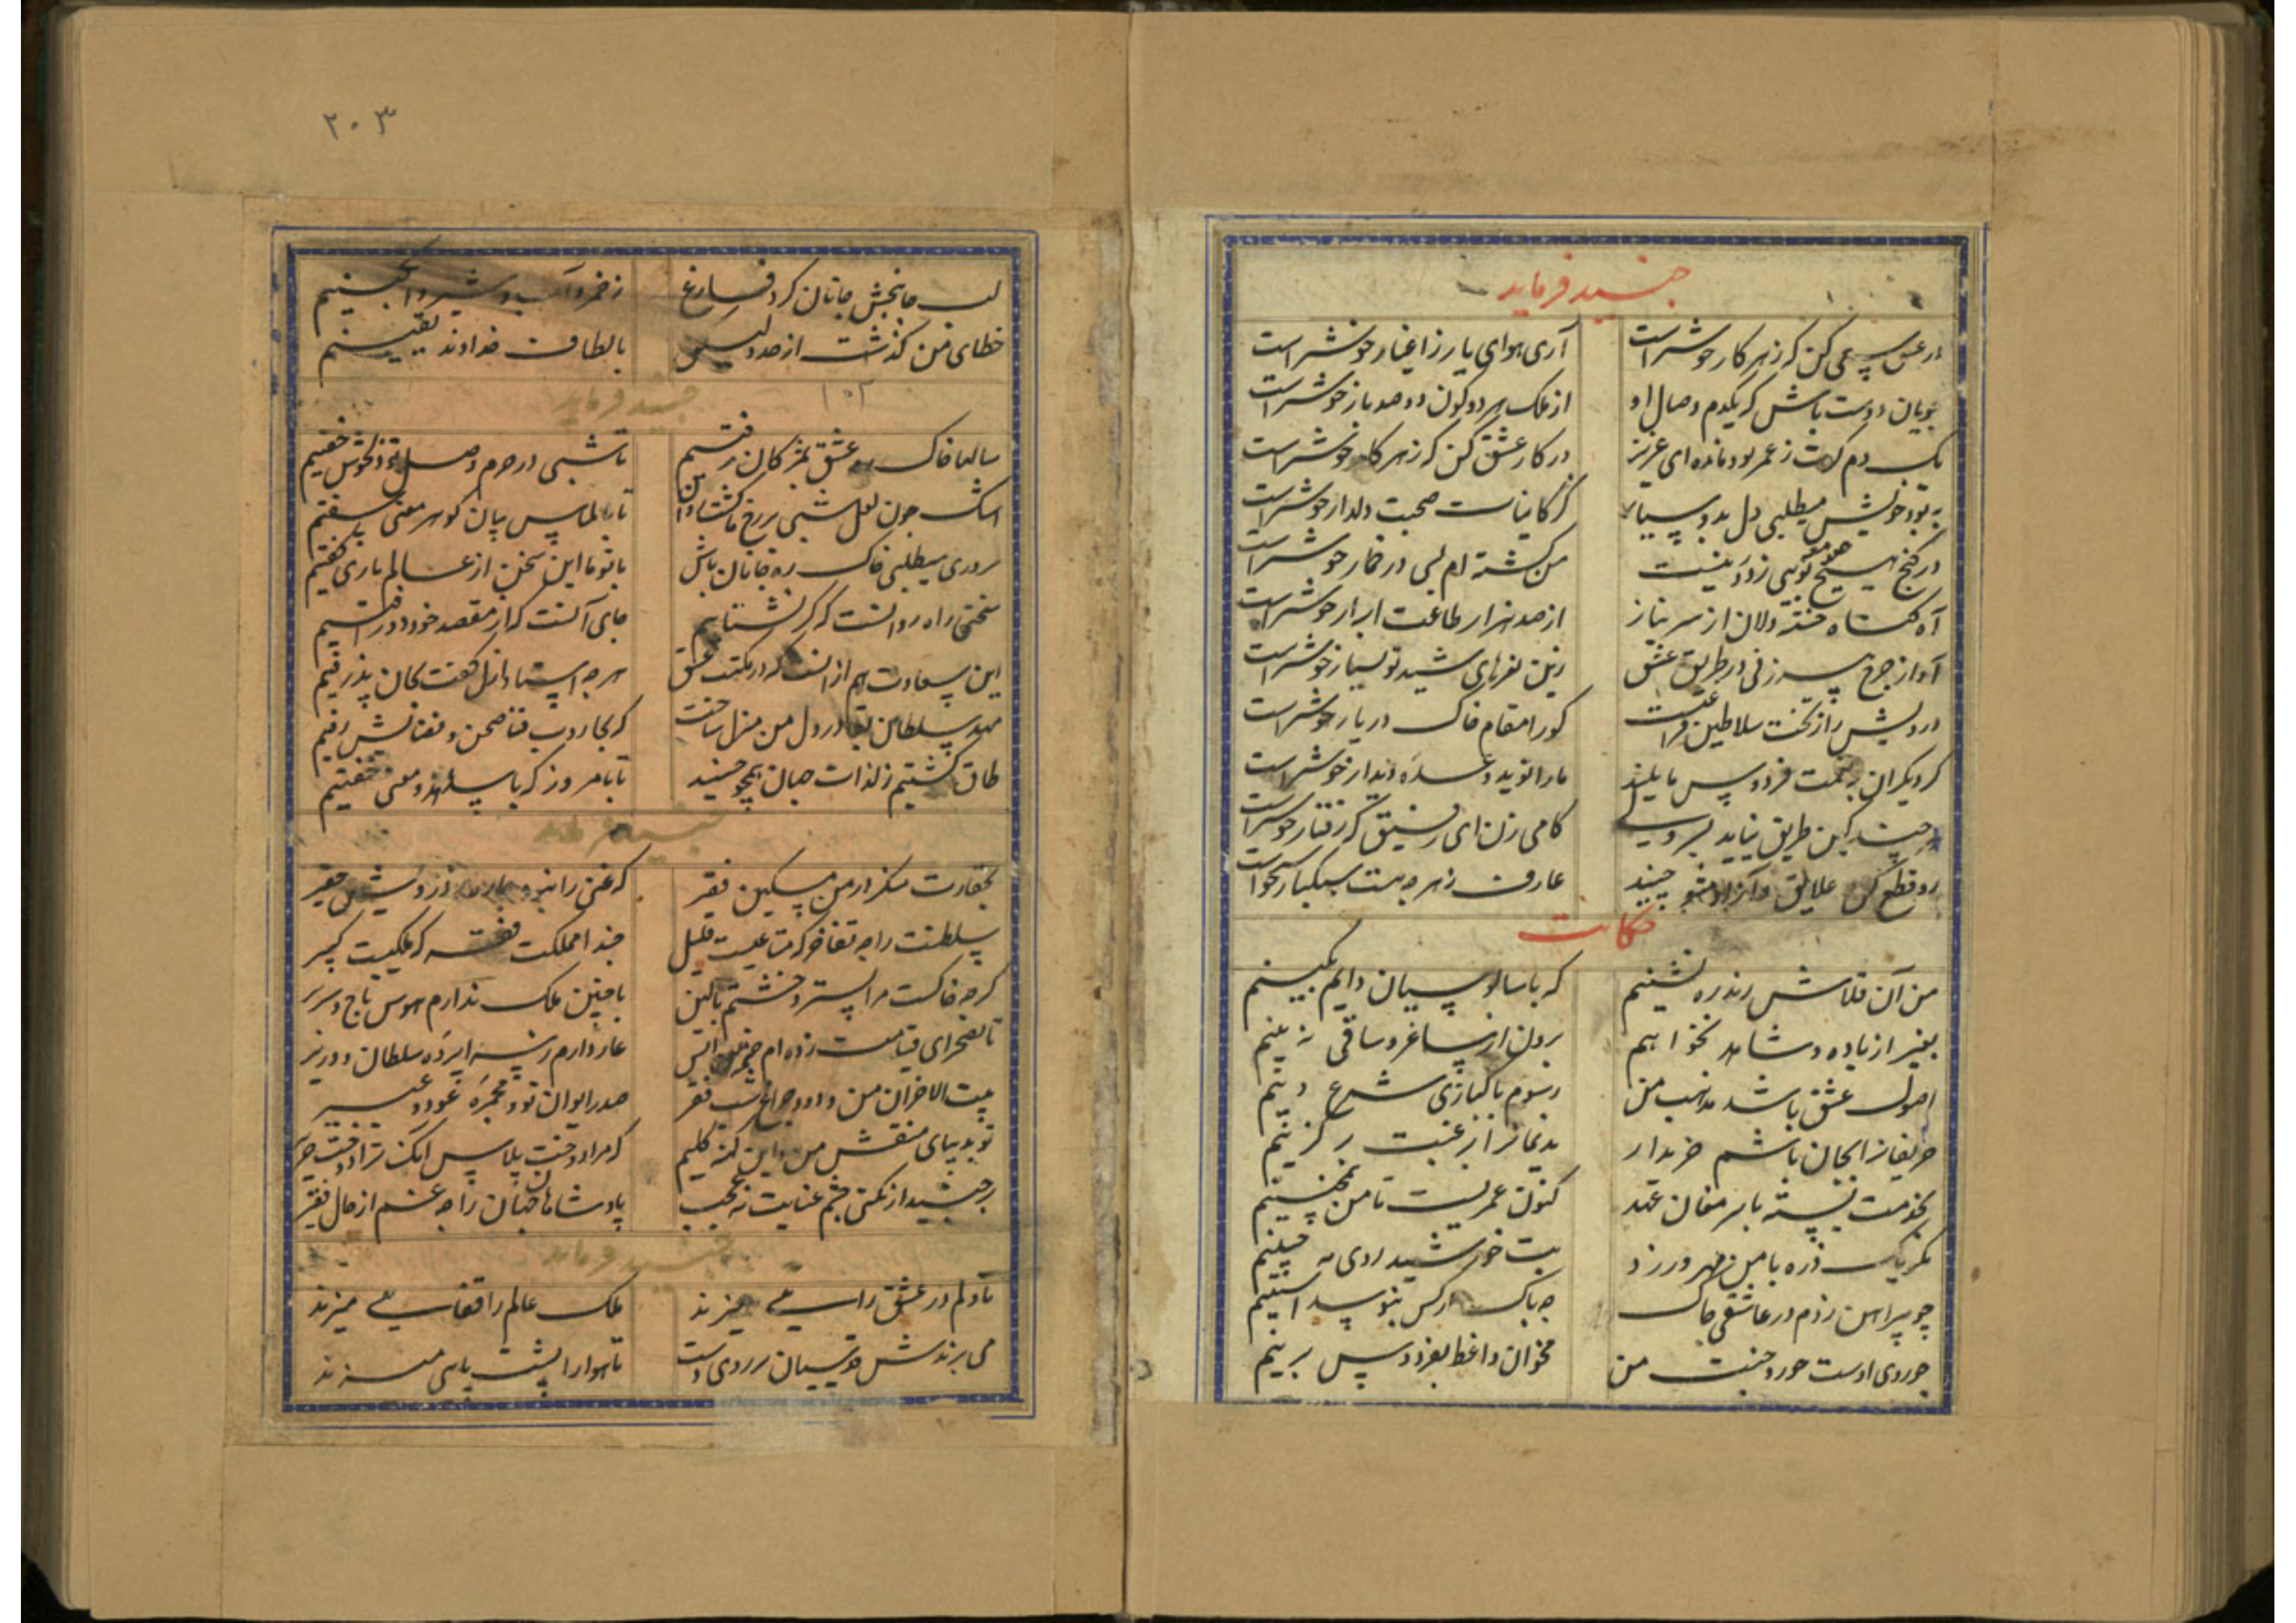 جنید فرماید
در عشق سعی کن که ز هر کار خوشتر است
آری هوای یار ز اغیار خوشتر است
جویان دوست باش که یکدم وصال او
از ملک هر دو کون دو صد بار خوشتر است
یک دم کرت ز عمر بود مانده ای عزیز
در کار عشق کن که ز هر کار خوشتر است
بهبود خویش میطلبی دل بدو سپار
کز کاینات صحبت دلدار خوشتر است
در کنج هیچ صومعه بویی ز درد نیست
من کشته ام بسی در خمار خوشتر است
آه خسته دلان از سر نیاز
از صد هزار طاعت ابرار خوشتر است
آواز چرخ پیرزنی در طریق عشق
زین نعرهای شید تو بسیار خوشتر است
درویش را ز تخت سلاطین فراغتست
کورا مقام خاک در یار خوشتر است
کر دیکران به نعمت فردوس مایلند
ما را نوید وعده دیدار خوشتر است
کین طریق نیاید بسر ولی
کامی زن ای رفیق که رفتار خوشتر است
رو قطع کن علایق و آزاد شو جنید
عارف ز هر چه هست سبکبار خوشتر است
حکایت
من آن قلاش رند ره نشینم
که با سالوسیان دایم بکینم
بغیر از باده و شاهد نخواهم
برون از ساغر و ساقی نه بینم
اصول عشق باشد مذهب من
رسوم پاکبازی شرع و دینم
حریفانرا بجان باشم خریدار
ندیمانرا ز رغبت بر کزینم
بخدمت بسته با پیر مغان عهد
کنون عمریست تا من همچنینم
مکر یک ذره با من مهر ورزد
بت خورشید روی مه جبینم
چو پیراهن زدم در عاشقی چاک
چه باک ار کس نبوسد آستینم
چو روی اوست حور و جنت من
مخوان واعظ بفردوس برینم
۲۰۳
لب جانبخش جانان کرد فارغ
ز خمر و آب و شیر و انکبینم
خطای من کذشت از حد ولیکن
بالطاف خداوند یقینم
جنید فرماید
۱۰۲
سالها خاک ره عشق بمژکان رفتیم
تا شبی در حرم وصل تو دلخوش خفتیم
اشک چون لعل شبی بر رخ ما کشاد
تا بالماس بیان کوهر معنی سفتیم
سروری میطلبی خاک ره جانان باش
با تو ما این سخن از عالم یاری کفتیم
سختی راه روا نست که کر بشتابیم
جای آنست که از مقصد خود دور افتیم
این سعادت هم از آنست که در مکتب عشق
هر چه استاد ازل کفت بجان پذرفتیم
مهد سلطان بقا در دل من منزل ساخت
که بجاروب فنا صحن و فضایش رفتیم
طاق کشتیم ز لذات جهان همچو جنید
تا بامروز که با معنی جفتیم
جنید فرماید
بحقارت منکر در من مسکین فقیر
که غنی را نبود درویش فقیر
سلطنت را چه تفاخر که متاعیست قلیل
حبذا مملکت فقر که ملکیست کبیر
کر چه خاکست مرا بستر و خشتم بالین
با چنین ملک ندارم هوس تاج و سریر
تا بصحرای قیامت زده ام خیمه انس
عار دارم ز سراپرده سلطان و وزیر
بیت الاحزان من و دود چراغ شب فقر
صدر ایوان تو و مجمره عود و عبیر
تو بدیبای منقش من و این کهنه کلیم
که مرا دوخت پلاس آنک ترا دوخت حریر
بر جنید ار نکنی چشم عنایت نه عجب
پادشاهان جهان را چه غم از حال فقیر
جنید فرماید
تا دلم در عشق رایی میزند
ملک عالم را قفایی میزند
می برندش قدسیان بر روی دست
تا هوا را پشت پایی میزند